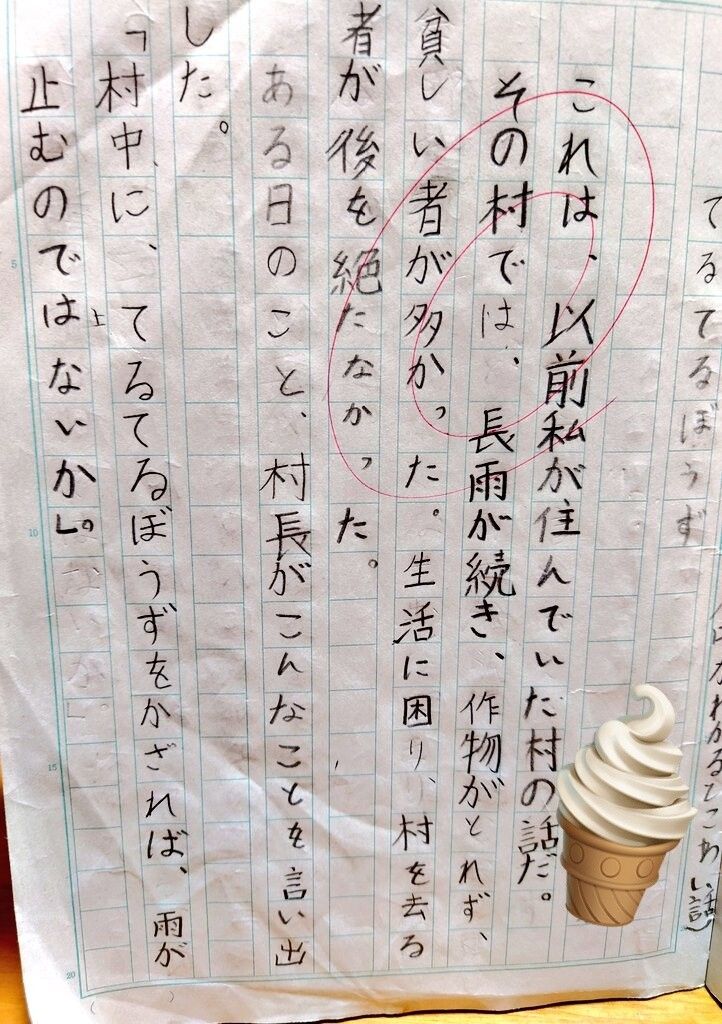 てるてるぼうず
がわかるとこわい話)
これは、以前私が住んでいた村の話だ。
その村では、長雨が続き、作物がとれず、
貧しい者が多かった。生活に困り、村を去る
者が後を絶たなかった。
ある日のこと、村長がこんなことを言い出
した。
「村中に、てるてるぼうずをかざれば、雨が
止むのではないか」。
上
5
10
15
20
( )